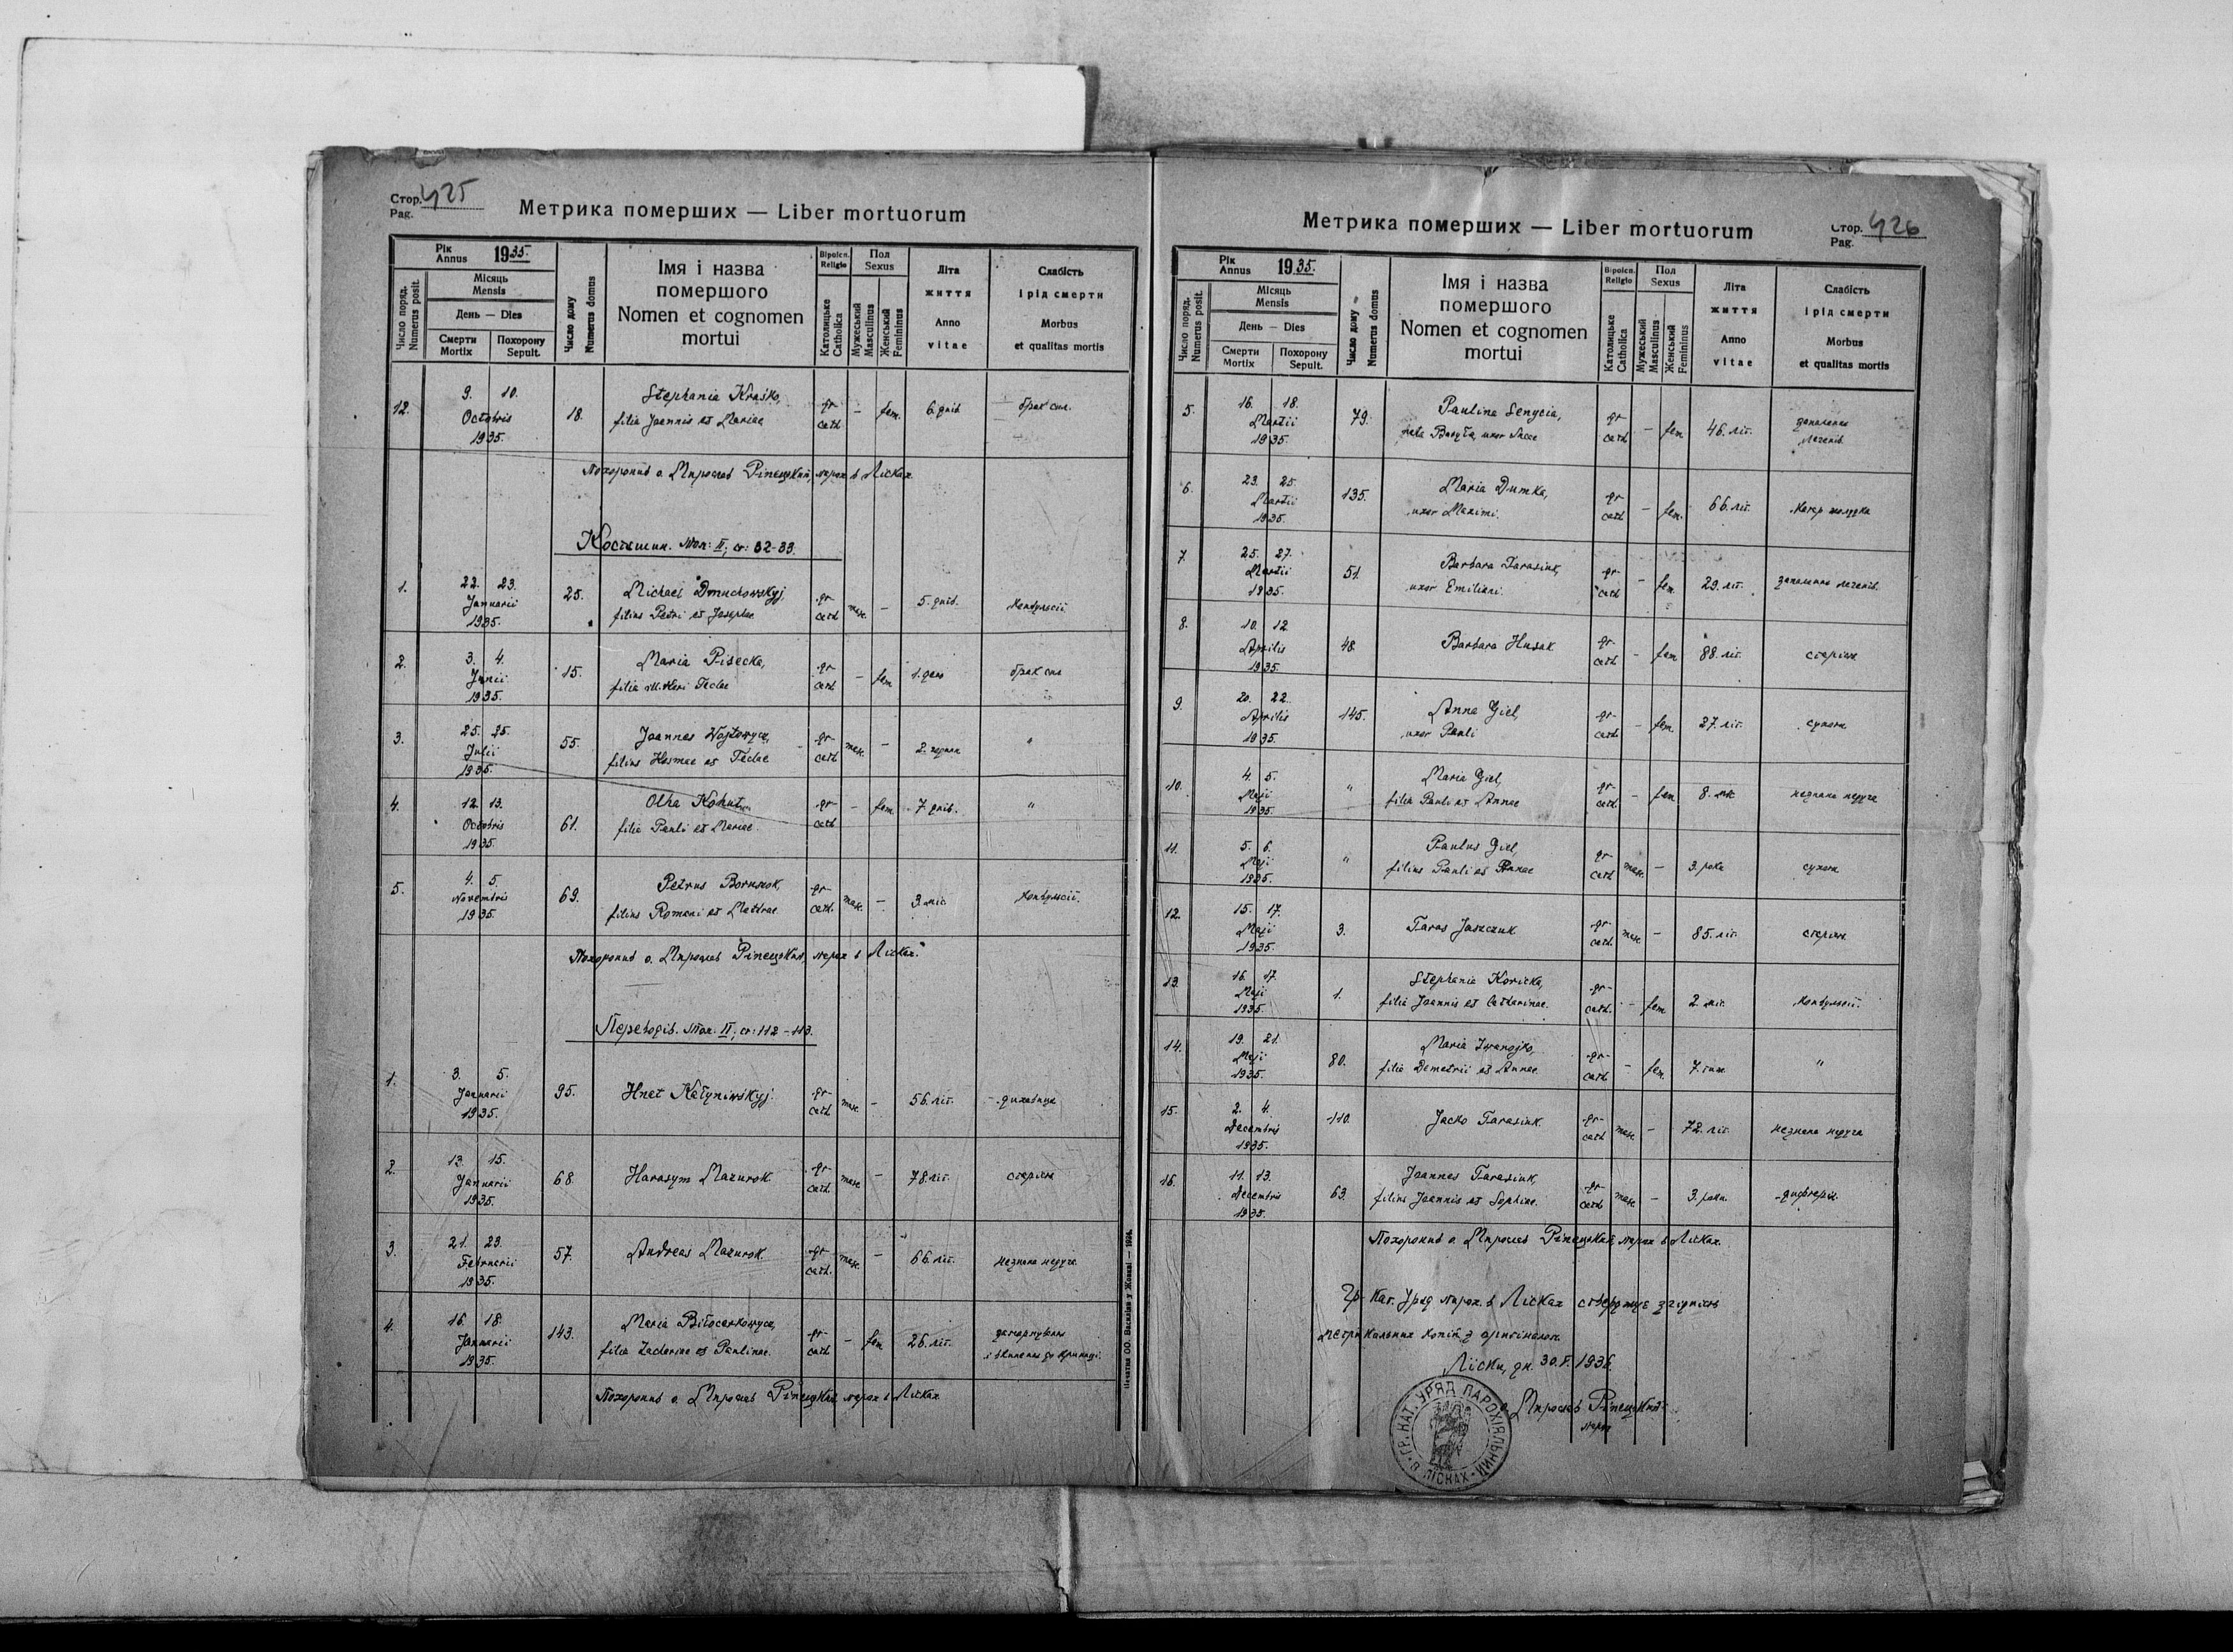 Стор. 425
Pag.
Метрика померших — Liber mortuorum
Рік
Annus
1935.
Число поряд.
Numerus posit.
Місяць
Mensis
День — Dies
Смерти
Mortix
Похорону
Sepult.
Число дому
Numerus domus
Імя і назва
помершого
Nomen et cognomen
mortui
Віроісп.
Religio
Католицьке
Catholica
Пол
Sexus
Мужеський
Masculinus
Женський
Femininus
Літа
життя
Anno
vitae
Слабість
і рід смерти
Morbus
et qualitas mortis
12. 9. 10. Octobris 1935. 18. Stephania Kraśko, gr cath — fem. 6. днів брак сил.
filia Joannis et Mariae
Похоронив о. Мирослав Ріпецький, парох в Лісках.
Костяшин. Том: II; ст: 32-33.
1. 22. 23. Januarii 1935. 25. Michael Dmuchowskyj gr cath masc. — 5. днів. конвульсії
filius Petri et Josephae
2. 3. 4. Junii 1935. 15. Maria Pisecka, gr cath — fem 1. день брак сил
filia Teclae
3. 25. 25. Julii 1935. 55. Joannes Wojtowycz, gr- cath masc. — 2. "
filius Kosmae et Teclae
4. 12. 13. Octobris 1935. 61. Olha Kohut, gr- cath — fem. 7 днів. "
filia Pauli et Mariae.
5. 4. 5. Novembris 1935 69. Petrus Bornuok, gr- cath. masc. — 3. міс. конвульсії.
filius Romani et
Похоронив о. Мирослав Ріпецький, парох в Лісках.
Переводів. Том. II; ст: 112-113.
1. 3. 5. Januarii 1935. 95. Hnat Kałyniwskyj. gr- cath masc. — 56. літ. духавиця
2. 13. 15. Januarii 1935. 68. Harasym Mazurok gr- cath. masc — 78. літ. старість
3. 21. 23. Februarii 1935. 57. Andreas Mazurok. gr- cath. masc. — 66. літ. незнана недуга
4. 16. 18. Januarii 1935. 143. Maria Biłocerkowycz, gr- cath — fem 26. літ.
filia Zachariae et Paulinae. до криниці.
Похоронив о. Мирослав Ріпецький парох в Лісках
Печатня ОО. Василіян у Жовкві — 1924.
Метрика померших — Liber mortuorum
Стор. 426
Pag.
Рік
Annus
1935.
Число поряд.
Numerus posit.
Місяць
Mensis
День — Dies
Смерти
Mortix
Похорону
Sepult.
Число дому
Numerus domus
Імя і назва
помершого
Nomen et cognomen
mortui
Віроісп.
Religio
Католицьке
Catholica
Пол
Sexus
Мужеський
Masculinus
Женський
Femininus
Літа
життя
Anno
vitae
Слабість
і рід смерти
Morbus
et qualitas mortis
5. 16. 18. Martii 1935 79. Paulina Senycia, gr cath — fem 46. літ. запалення легенів.
nata uxor
6. 23. 25. Martii 1935. 135. Maria Dumka, gr cath — fem. 66. літ. катар жолудка
uxor Maximi.
7 25. 27. Martii 1935. 51. Barbara Tarasiuk, gr- cath — fem 29. літ. запалення легенів.
uxor Emiliani.
8. 10. 12 Aprilis 1935. 48. Barbara Husak gr- cath — fem 88. літ. старість
9. 20. 22. Aprilis 1935. 145. Anna Giel, gr- cath. — fem. 27. літ. сухоти
uxor Pauli
10. 4. 5. Maji 1935. " Maria Giel, gr- cath — fem 8. міс незнана недуга
filia Pauli et Annae
11. 5. 6. Maji 1935. " Paulus Giel, gr- cath masc. — 3. роки сухоти
filius Pauli et Annae
12. 15. 17. Maji 1935. 3. Taras Juszczuk gr- cath. masc — 85. літ. старість
13. 16. 17. Maji 1935. 1. Stephania Koricka, gr- cath. — fem 2. міс. конвульсії.
filia Joannis et Catharinae.
14. 19. 21. Maji 1935. 80. Maria Iwanojko, gr- cath — fem. 7. "
filia Demetrii et Annae.
15. 2. 4. Decembris 1935. 110. Jacko Tarasiuk. gr- cath masc. — 72. літ. незнана недуга
16. 11. 13. Decembris 1935. 63. Joannes Tarasiuk, gr- cath masc — 3. роки. дифтерія.
filius Joannis et Sophiae.
Похоронив о. Мирослав Ріпецький, парох в Лісках.
Гр- Кат. Уряд парох. в Лісках стверджує згідність
метрикальних копій з оригіналом.
Ліски, дн. 30. 1936.
о. Мирослав Ріпецький
парох
ГР. КАТ. УРЯД ПАРОХІЯЛЬНИЙ В ЛІСКАХ